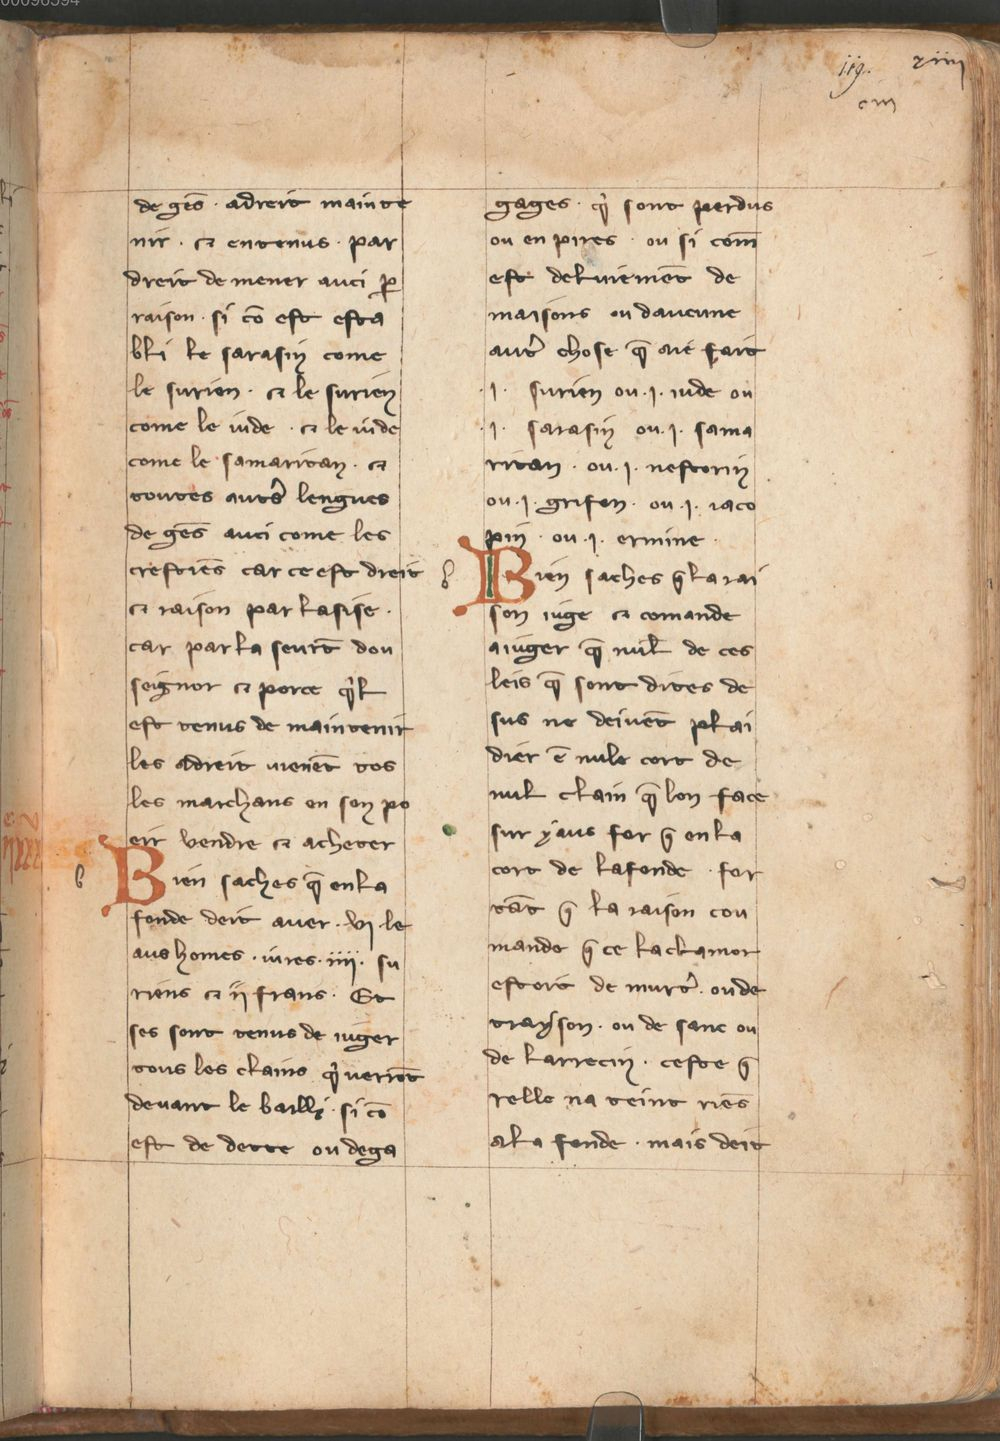 00096394
iij. xiiii
ciii
de gēs · adreit mainte
nir · ⁊ entenus · par
dreit de mener auci ꝑ
raison · si cō est esta
bli le sarasin come
le surien · ⁊ le surien
come le iude · ⁊ le iude
come le samaritan · ⁊
toutes autr̄s lengues
de gēs auci come les
crestiēs car ce est dreit
⁊ raison par lasise ·
car par la seurt̄ dou
seignor ⁊ porce q̇l
est tenus de maintenir
les adreit uienēt tos
les marchans en son po
eir vendre ⁊ acheter
b Bien saches q̄ en la
fonde deit auer · vj · le
aus homes · uires · iiii · su
riens ⁊ ij frans · Et
ses sont tenus de iuger
tous les clains q̇ verrōt
deuant le bailli · si cō
est de dette ou de ga
gages · q̇ sont perdus
ou en pires · ou si com̄
est deluiemēt de
maisons ou daucune
autr̄ chose q̄ ait fait
· j · surien ou · j · iude ou
· j · sarasin ou · j · sama
ritan · ou · j · nestorin
ou · j · grifon · ou · j · iaco
pin · ou · j · ermine ·
b Bien saches q̄ la rai
son iuge ⁊ comande
aiuger q̄ nul de ces
leis q̄ sont dites de
sus ne deiuēt plai
dier ē nule cort de
nul clain q̄ lon face
sur yaus for q̄ en la
cort de la fonde · for
tāt q̄ la raison cou
mande q̄ ce la clamor
estoit de murt̄r · ou de
trayson · ou de sanc ou
de larrecin · ceste q̄
relle na teint riēs
a la fonde · mais deit